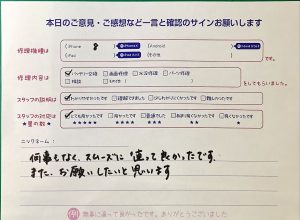 本日のご意見・ご感想など一言と確認のサインお願いします
修理機種は
iPhone 8
Android
iPad
その他
です。
修理内容は
バッテリー交換 画面修理 水没修理 パーツ修理
をしてもらいました。
スタッフの説明は
わかりやすかったです
難しかったです
スタッフの対応は
★星の数★
とても良かったです 良かったです 普通でした 良くなかったです
★★★★★ ★★★★ ★★★ ★★ ★
ニックネーム：
何事もなく、スムーズに直って良かったです。
また、お願いしたいと思います
無事に直って良かったです。ありがとうございました